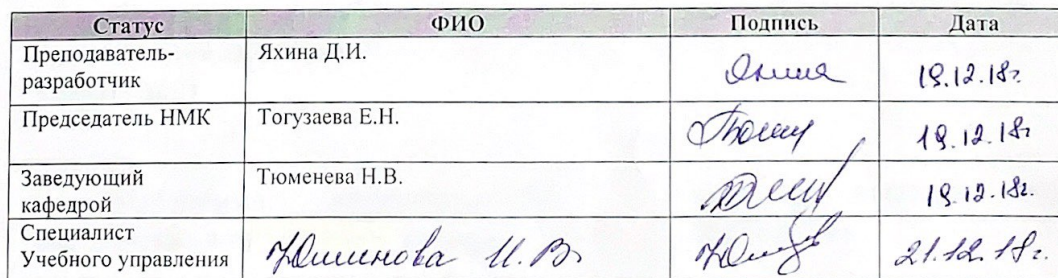 Статус ФИО Подпись Дата
Преподаватель- Яхина Д.И.
разработчик 19.12.18г
Председатель НМК Тогузаева Е.Н. 19.12.18г
Заведующий Тюменева Н.В.
кафедрой 19.12.18г.
Специалист
Учебного управления Юшинова И.В. 21.12.18г.